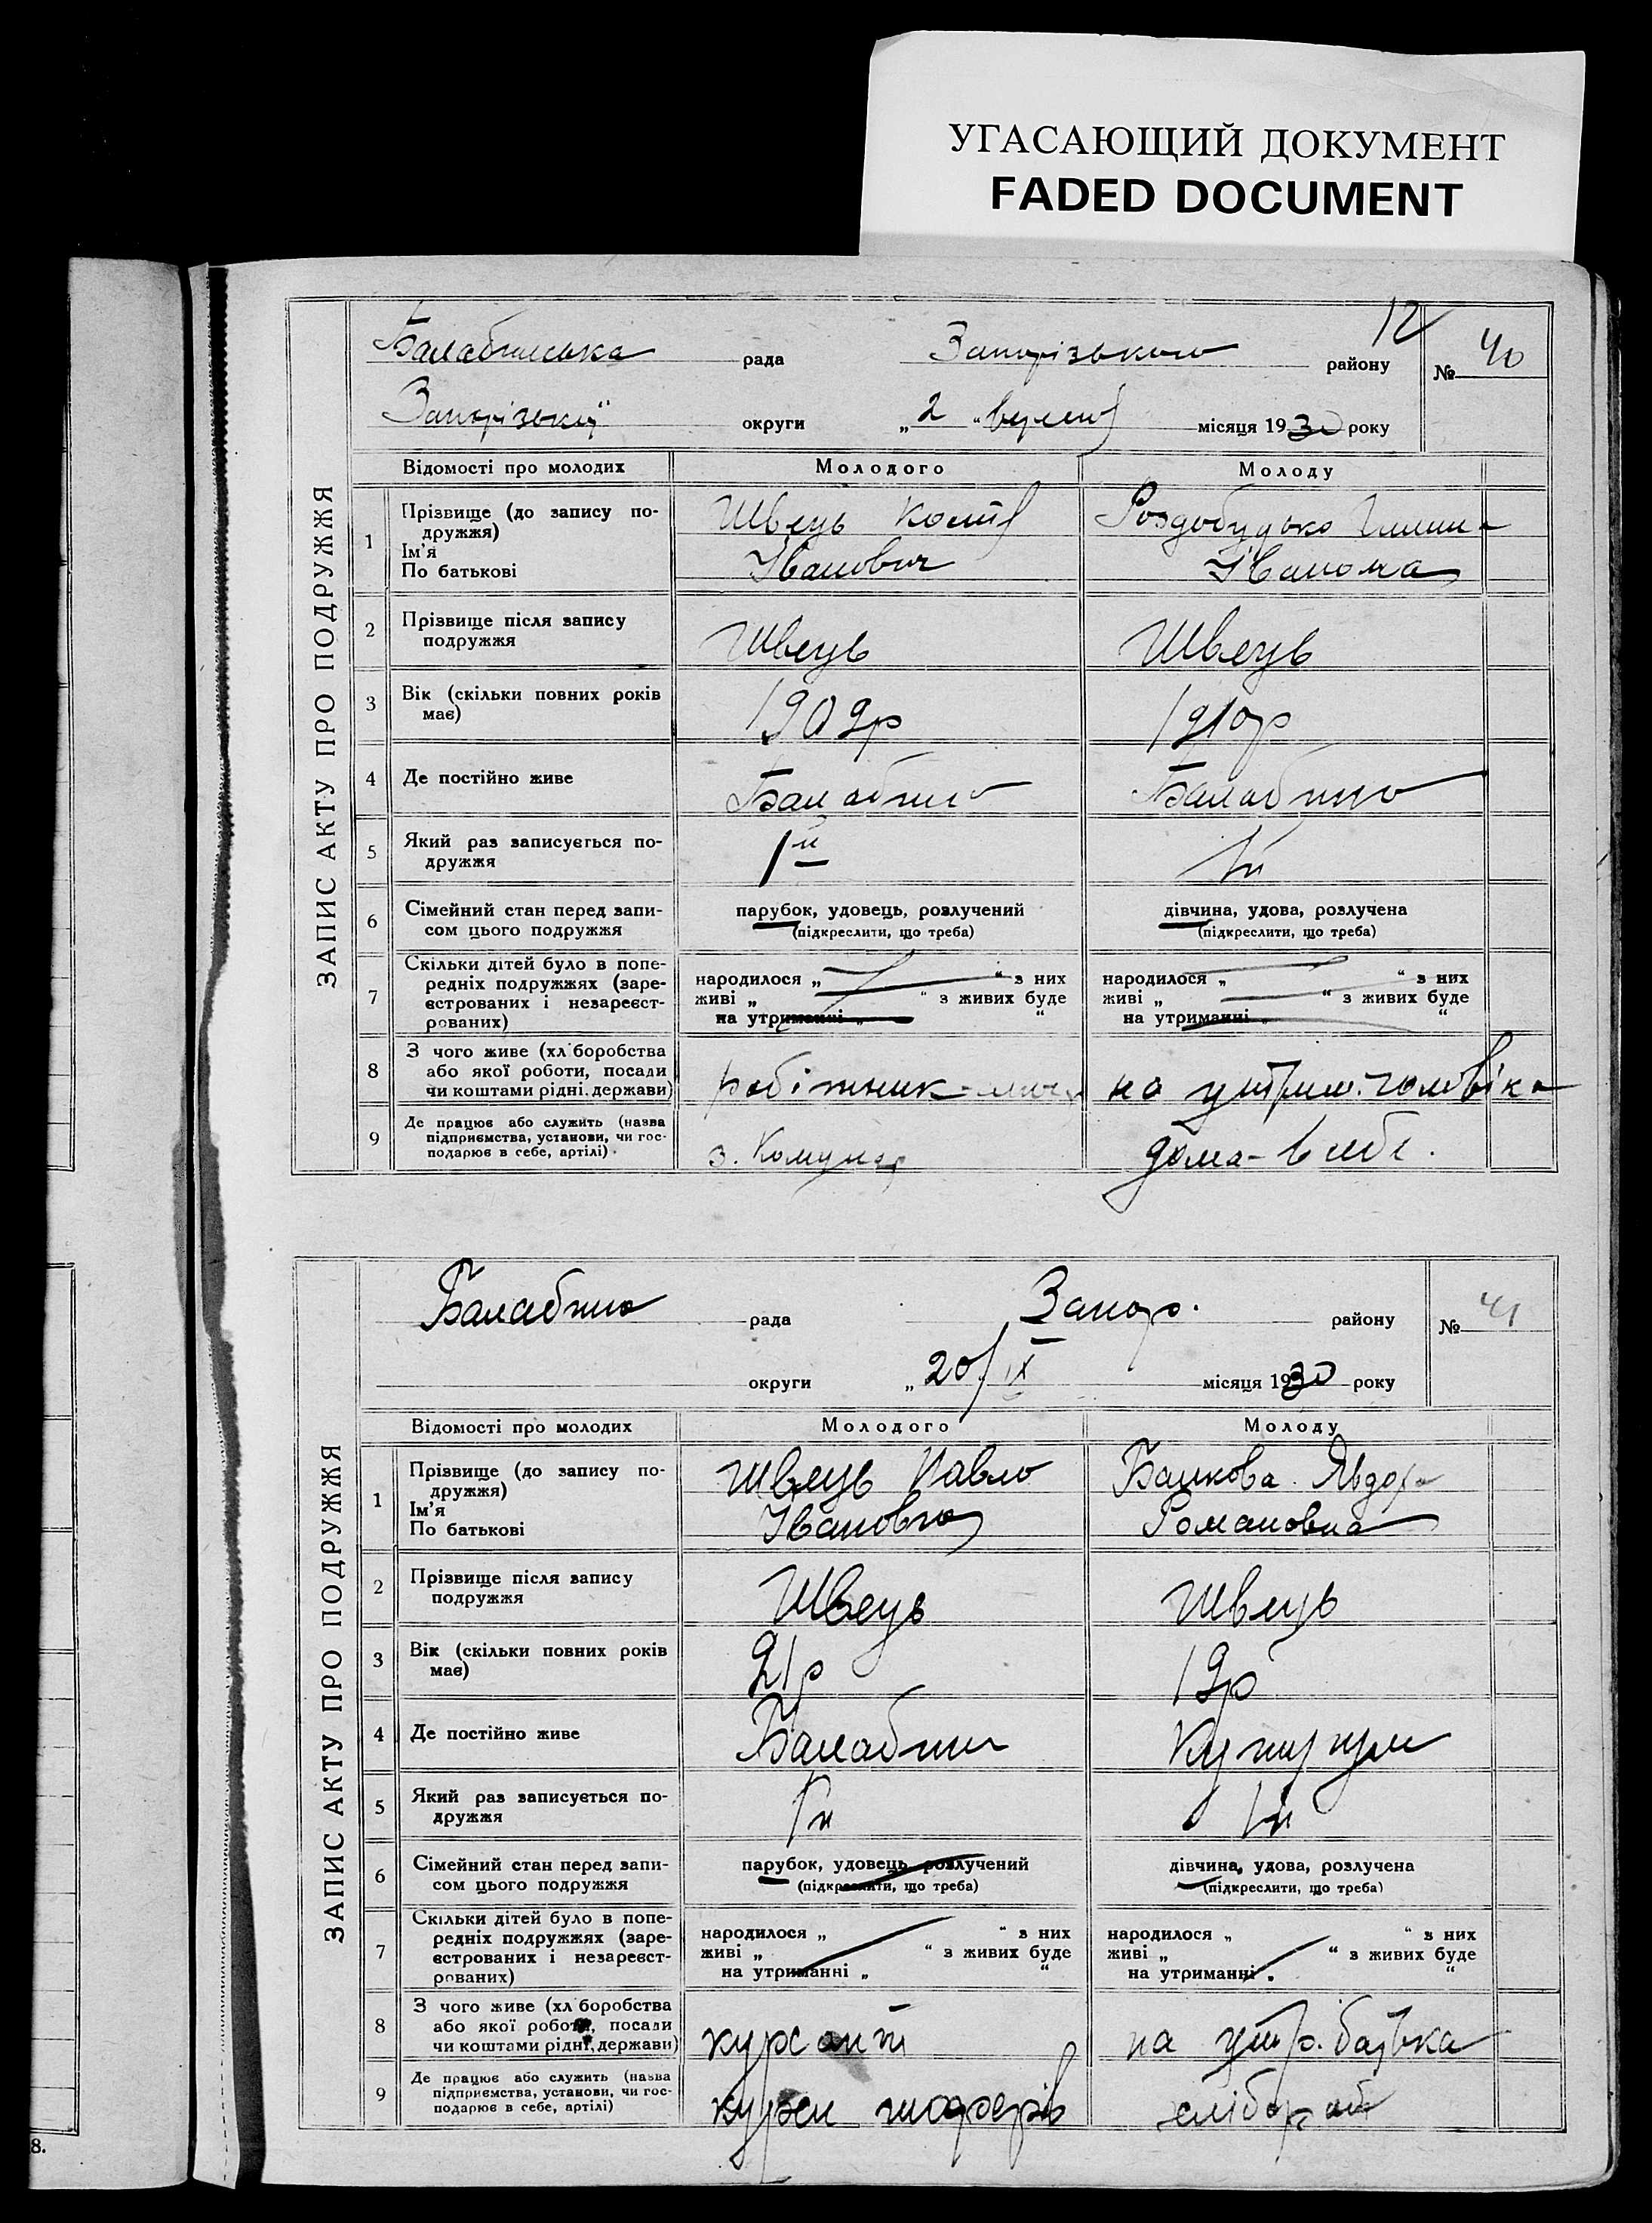 УГАСАЮЩИЙ ДОКУМЕНТ
FADED DOCUMENT
12
ЗАПИС АКТУ ПРО ПОДРУЖЖЯ
Балабинська рада Запорізького району № 40
Запорізької округи „ 2 “ місяця 1930 року
Відомості про молодих Молодого Молоду
1 Прізвище (до запису по-
дружжя)
Ім'я
По батькові
Швець
Іванович
Роздобудько
Івановна
2 Прізвище після запису
подружжя
Швець Швець
3 Вік (скільки повних років
має)
1909р 1910р
4 Де постійно живе Балабино Балабино
5 Який раз записується по-
дружжя
1й 1й
6 Сімейний стан перед запи-
сом цього подружжя
парубок, удовець, розлучений
(підкреслити, що треба)
дівчина, удова, розлучена
(підкреслити, що треба)
7 Скільки дітей було в попе-
редніх подружжях (заре-
єстрованих і незареєст-
рованих)
народилося „ “ з них
живі „ “ з живих буде
на утриманні „ “
народилося „ “ з них
живі „ “ з живих буде
на утриманні „ “
8 З чого живе (хл боробства
або якої роботи, посади
чи коштами рідні. держави)
робітник на утрим. чоловіка
9 Де працює або служить (назва
підприємства, установи, чи гос-
подарює в себе, артілі)
з. Комунар дома - в себе.
ЗАПИС АКТУ ПРО ПОДРУЖЖЯ
Балабино рада Запор. району № 41
округи „ 20/IX місяця 1930 року
Відомості про молодих Молодого Молоду
1 Прізвище (до запису по-
дружжя)
Ім'я
По батькові
Швець Павло
Іванович
Банкова Явдоха
Романовна
2 Прізвище після запису
подружжя
Швець Швець
3 Вік (скільки повних років
має)
21р 19р
4 Де постійно живе Балабин Кушугум
5 Який раз записується по-
дружжя
1й 1й
6 Сімейний стан перед запи-
сом цього подружжя
парубок, удовець, розлучений
(підкреслити, що треба)
дівчина, удова, розлучена
(підкреслити, що треба)
7 Скільки дітей було в попе-
редніх подружжях (заре-
єстрованих і незареєст-
рованих)
народилося „ “ з них
живі „ “ з живих буде
на утриманні „ “
народилося „ “ з них
живі „ “ з живих буде
на утриманні „ “
8 З чого живе (хл боробства
або якої роботи, посади
чи коштами рідні, держави)
курсант на утр. батька
9 Де працює або служить (назва
підприємства, установи, чи гос-
подарює в себе, артілі)
курси шоферів хлібороб
8.